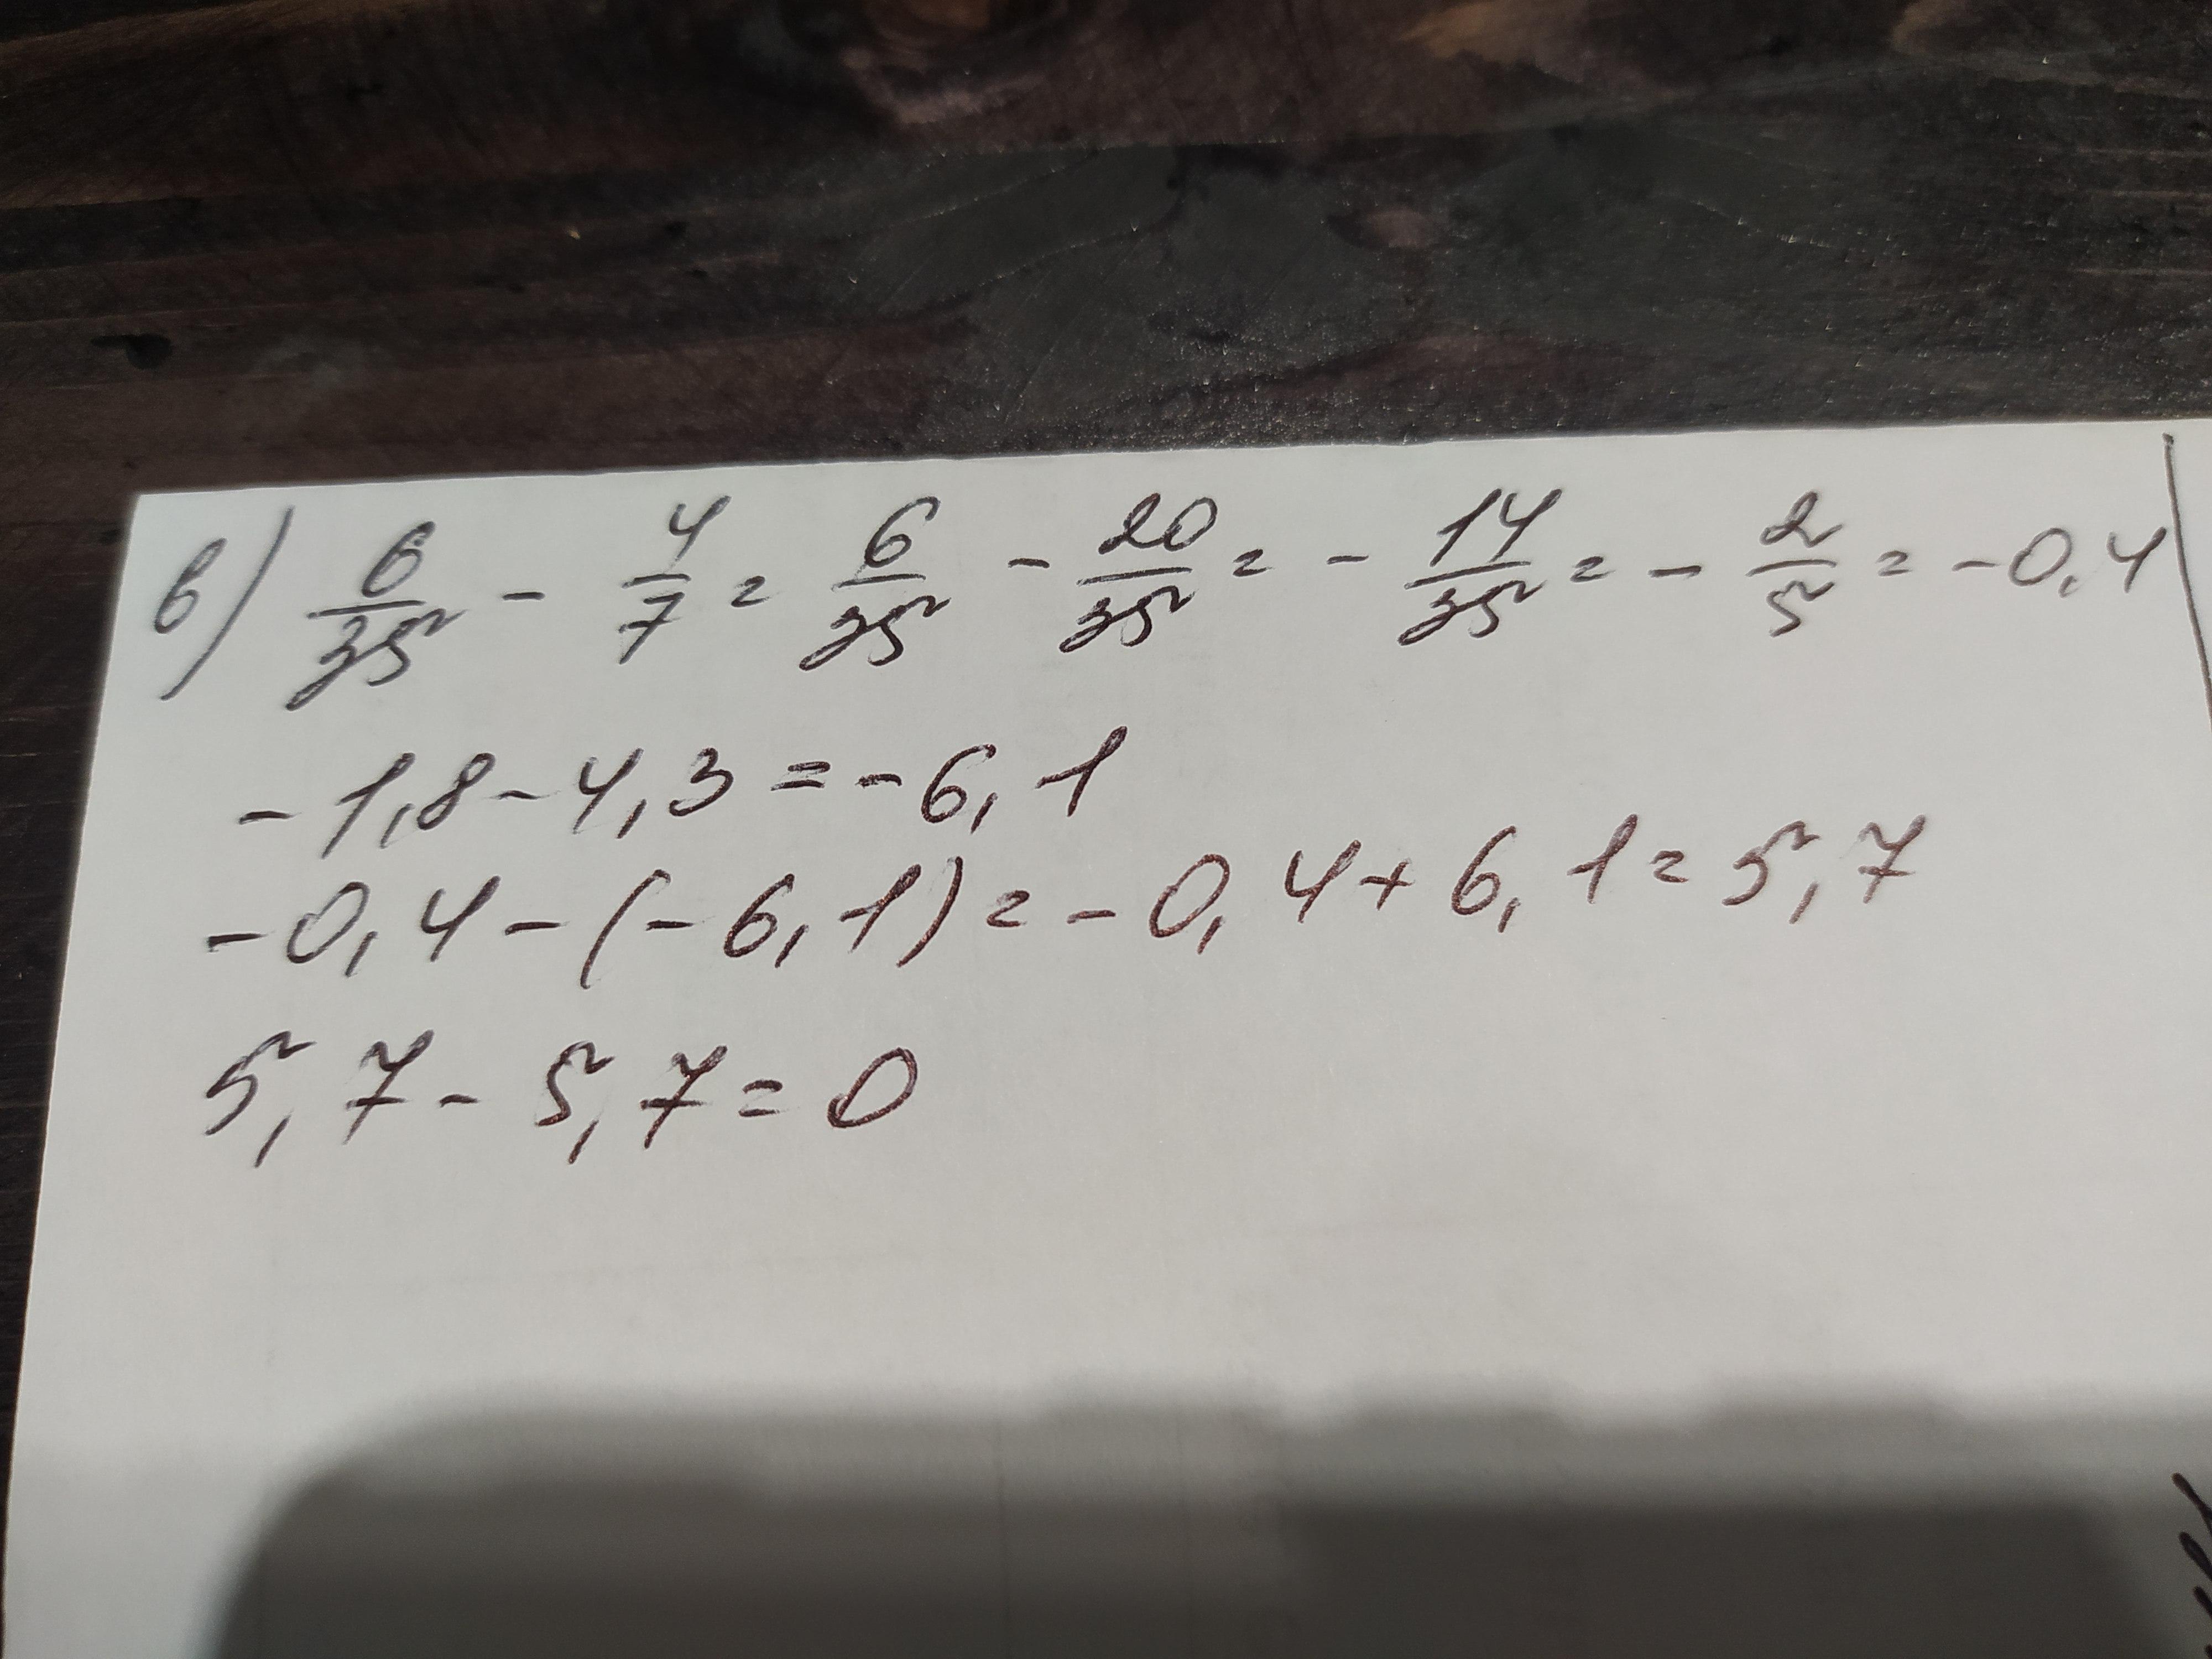 в) 6/35 - 4/7 = 6/35 - 20/35 = - 14/35 = - 2/5 = -0,4
-1,8-4,3=-6,1
-0,4-(-6,1)=-0,4+6,1=5,7
5,7-5,7=0